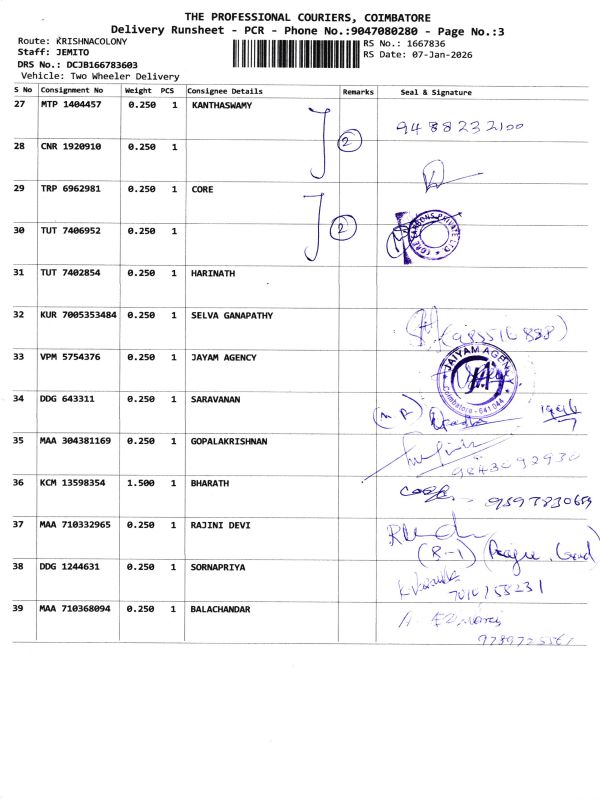 THE PROFESSIONAL COURIERS, COIMBATORE
Delivery Runsheet - PCR - Phone No.:9047080280 - Page No.:3
Route: KRISHNACOLONY
Staff: JEMITO
DRS No.: DCJB166783603
Vehicle: Two Wheeler Delivery
RS No.: 1667836
RS Date: 07-Jan-2026
S No Consignment No Weight PCS Consignee Details Remarks Seal & Signature
27 MTP 1404457 0.250 1 KANTHASWAMY
9488232100
28 CNR 1920910 0.250 1 2
29 TRP 6962981 0.250 1 CORE
30 TUT 7406952 0.250 1 2
CORE CARBONS PRIVATE LTD
31 TUT 7402854 0.250 1 HARINATH
32 KUR 7005353484 0.250 1 SELVA GANAPATHY
33 VPM 5754376 0.250 1 JAYAM AGENCY
JAIYAM AGENCY
Coimbatore - 641 044
34 DDG 643311 0.250 1 SARAVANAN
35 MAA 304381169 0.250 1 GOPALAKRISHNAN
9843092930
36 KCM 13598354 1.500 1 BHARATH
37 MAA 710332965 0.250 1 RAJINI DEVI
(R-1)
38 DDG 1244631 0.250 1 SORNAPRIYA
39 MAA 710368094 0.250 1 BALACHANDAR